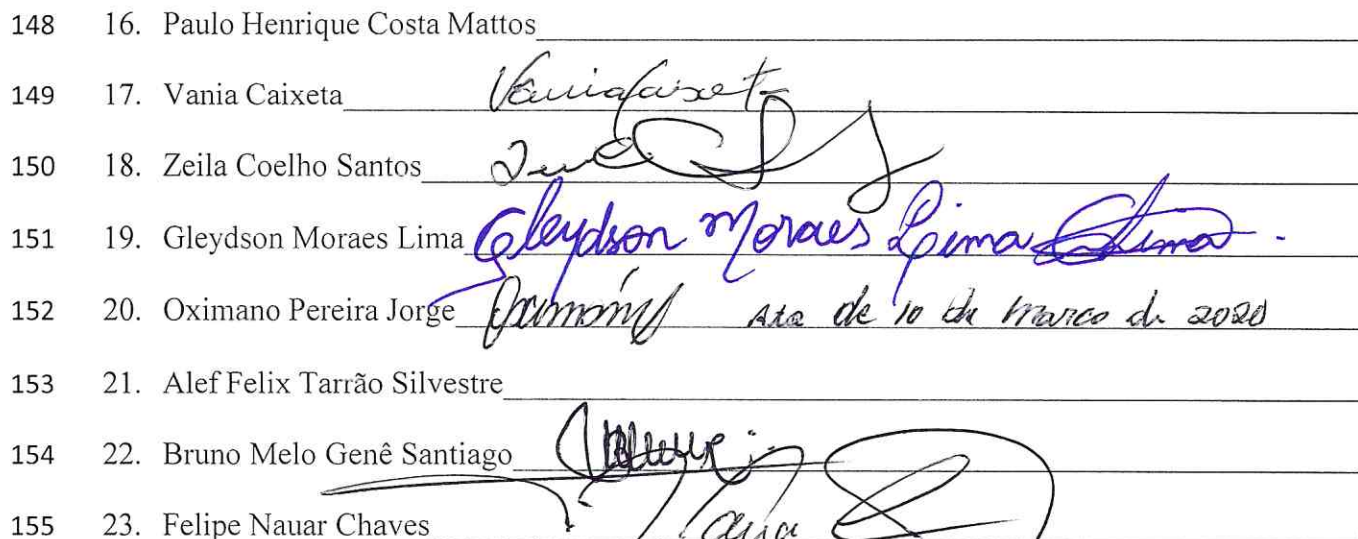 148 16. Paulo Henrique Costa Mattos
149 17. Vania Caixeta Vania Caixeta
150 18. Zeila Coelho Santos
151 19. Gleydson Moraes Lima Gleydson Moraes Lima Lima
152 20. Oximano Pereira Jorge Ata de 10 de Março de 2020
153 21. Alef Felix Tarrão Silvestre
154 22. Bruno Melo Genê Santiago
155 23. Felipe Nauar Chaves